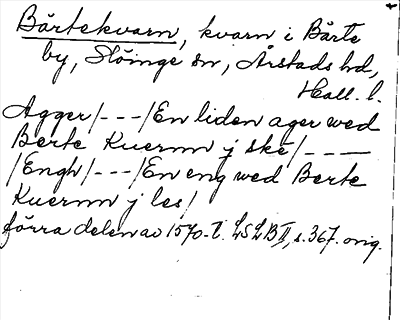 Bårtekvarn, kvarn i Bårte
by, Slöinge sn, Årstads hd,
Hall. l.
Agger/---/En liden ager wed
Berte Kuernn j ske/---
/Engh/---/En eng wed Berte
Kuernn j les/
förra delen av 1570-t. LSLB II, s. 367. orig.